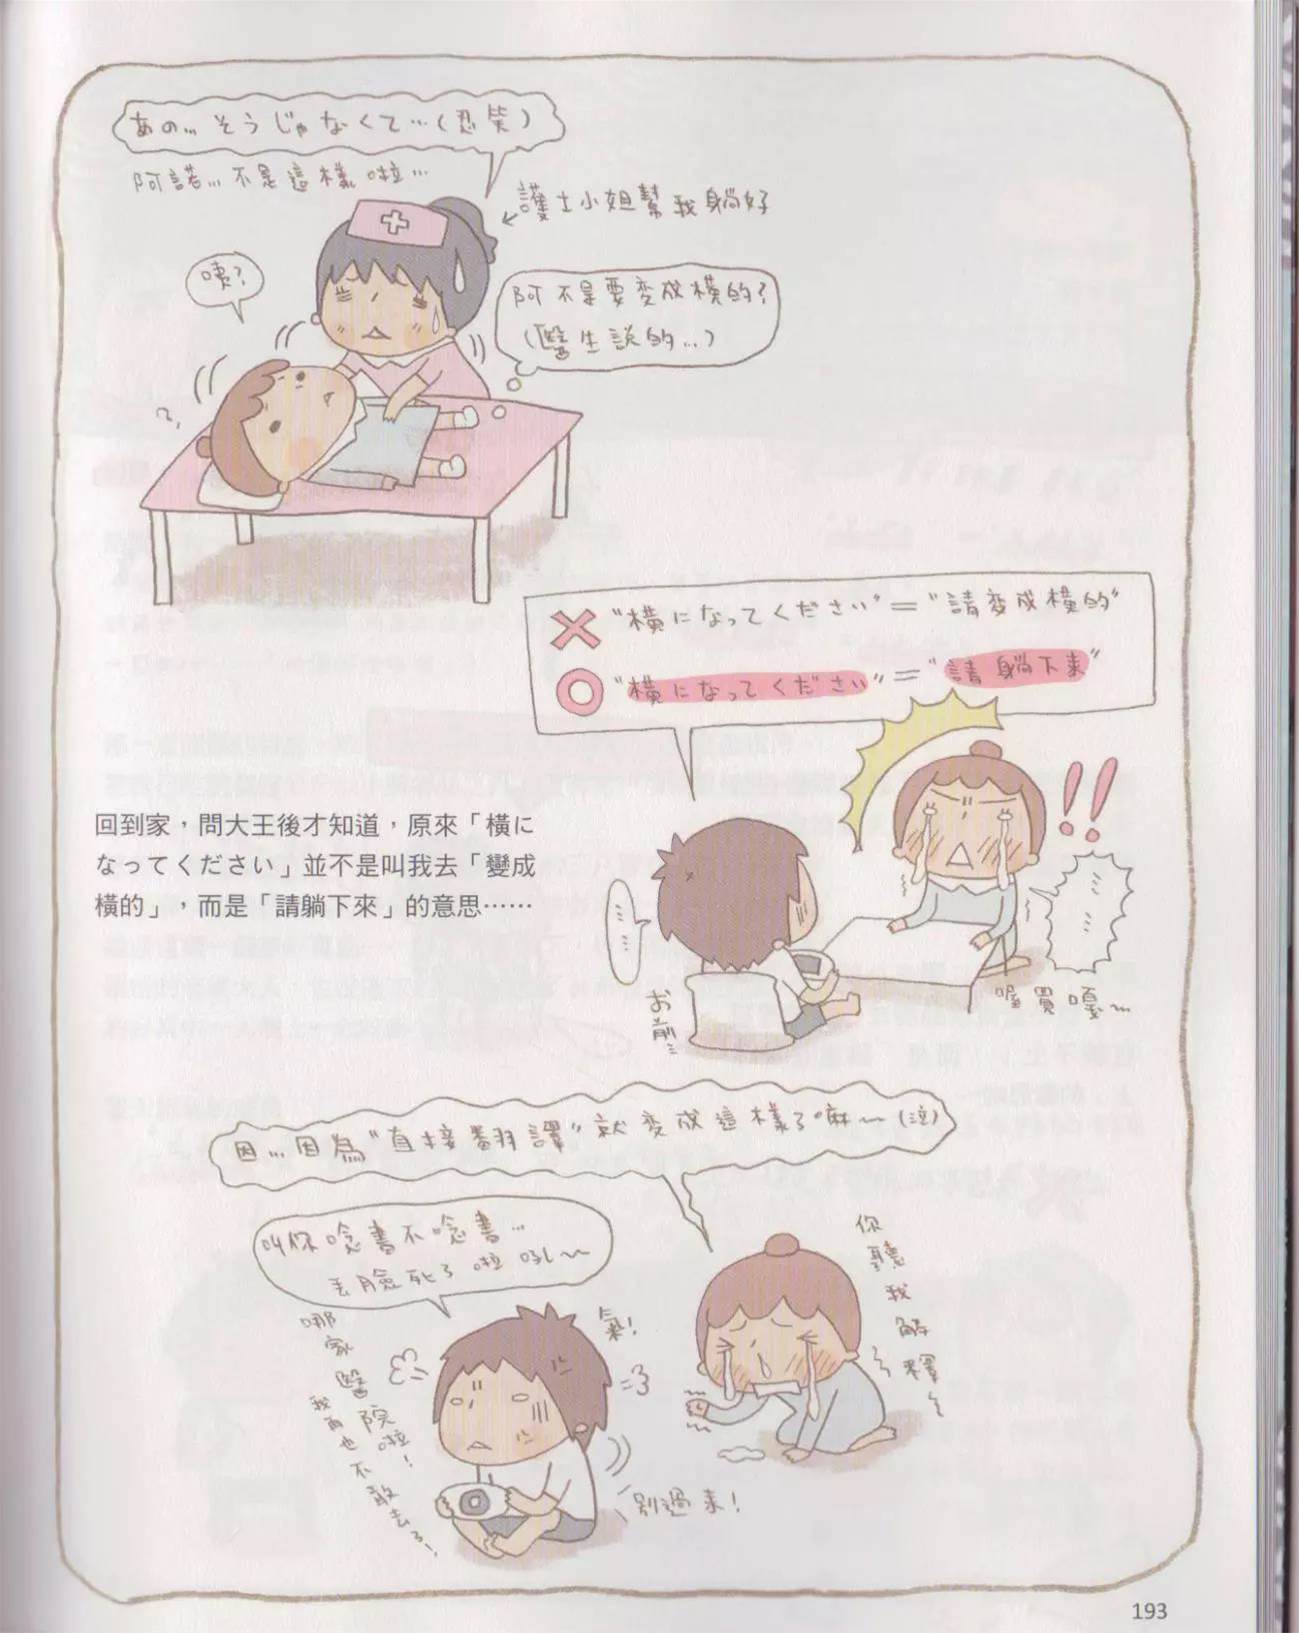 あの…そうじゃなくて…(忍笑)
阿諾…不是這樣啦…
護士小姐幫我躺好
咦?
阿不是要変成横的?
(醫生說的…)
?
"横になってください"="請変成横的"
"横になってください"="請躺下来"
!!
回到家，問大王後才知道，原來「橫に
なってください」並不是叫我去「變成
橫的」，而是「請躺下來」的意思……
……
お前…
喔買嘎~
因…因為"直接翻譯"就変成這樣了嘛~(泣)
叫你唸書不唸書…
丟臉死了啦吼~
你聽我解釋~
哪家醫院啦!
我再也不敢去了…
氣!
別過来!
193